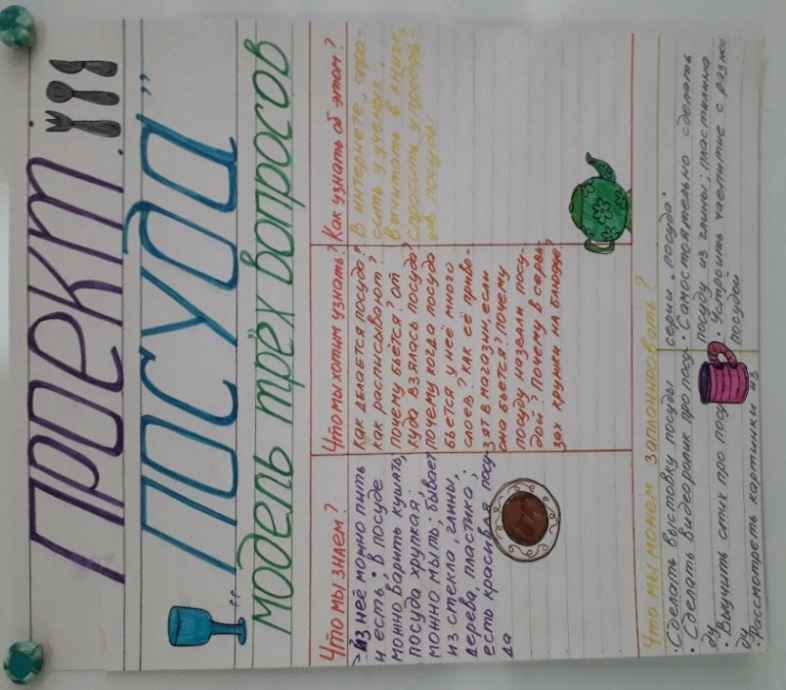 ПРОЕКТ:
„ПОСУДА”
модель трёх вопросов
Что мы знаем?
Из неё можно пить
и есть • в посуде
можно варить кушать,
посуда хрупкая,
можно мыть • бывает
из стекла, глины,
дерева, пластика,
есть красивая посу-
да
Что мы хотим узнать?
Как делается посуда?
как расписывают?
почему бьётся? от
куда взялась посуда?
почему когда посуда
бьется у неё много
слоев? как её приво-
зят в магазин, если
она бьется? почему
посуду назвали посу-
дой? Почему в серви-
зах кружки на блюдце?
Как узнать об этом?
В интернете, спро-
сить у ученой,
вычитать в книге,
спросить у продав-
цов посуды
Что мы можем запланировать?
• Сделать выставку посуды
• Сделать видеоролик про посу-
ду
• Выучить стих про посу-
ду
• Рассмотреть картинки из
серии „посуда”
• Самостоятельно сделать
посуду из глины, пластилина
• Устроить чаепитие с разной
посудой